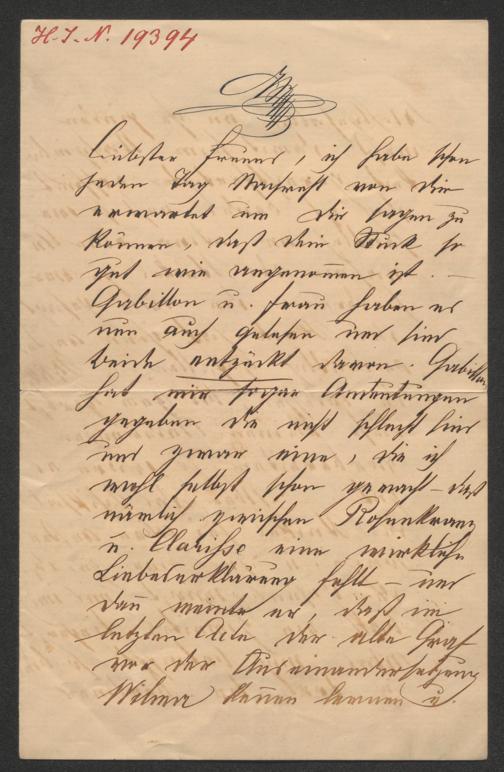 H. I. N. 19394
Liebster Freund, ich habe schon
jeden Tag Nachricht von dir
erwartet um dir sagen zu
können, daß dein Stück so
gut wie angenommen ist. —
Gabillon u. Frau haben es
nun auch gelesen und sind
beide entzückt davon. Gabillon
hat mir sogar Andeutungen
gegeben die nicht schlecht sind
und zwar eine, die ich
wohl selbst schon gemacht – daß
nämlich zwischen Rosenkranz
u. Clarisse eine wirkliche
Liebeserklärung fehlt – und
dann meinte er, daß im
letzten Acte der alte Graf
vor der Auseinandersetzung
Wilma kennen lernen u.